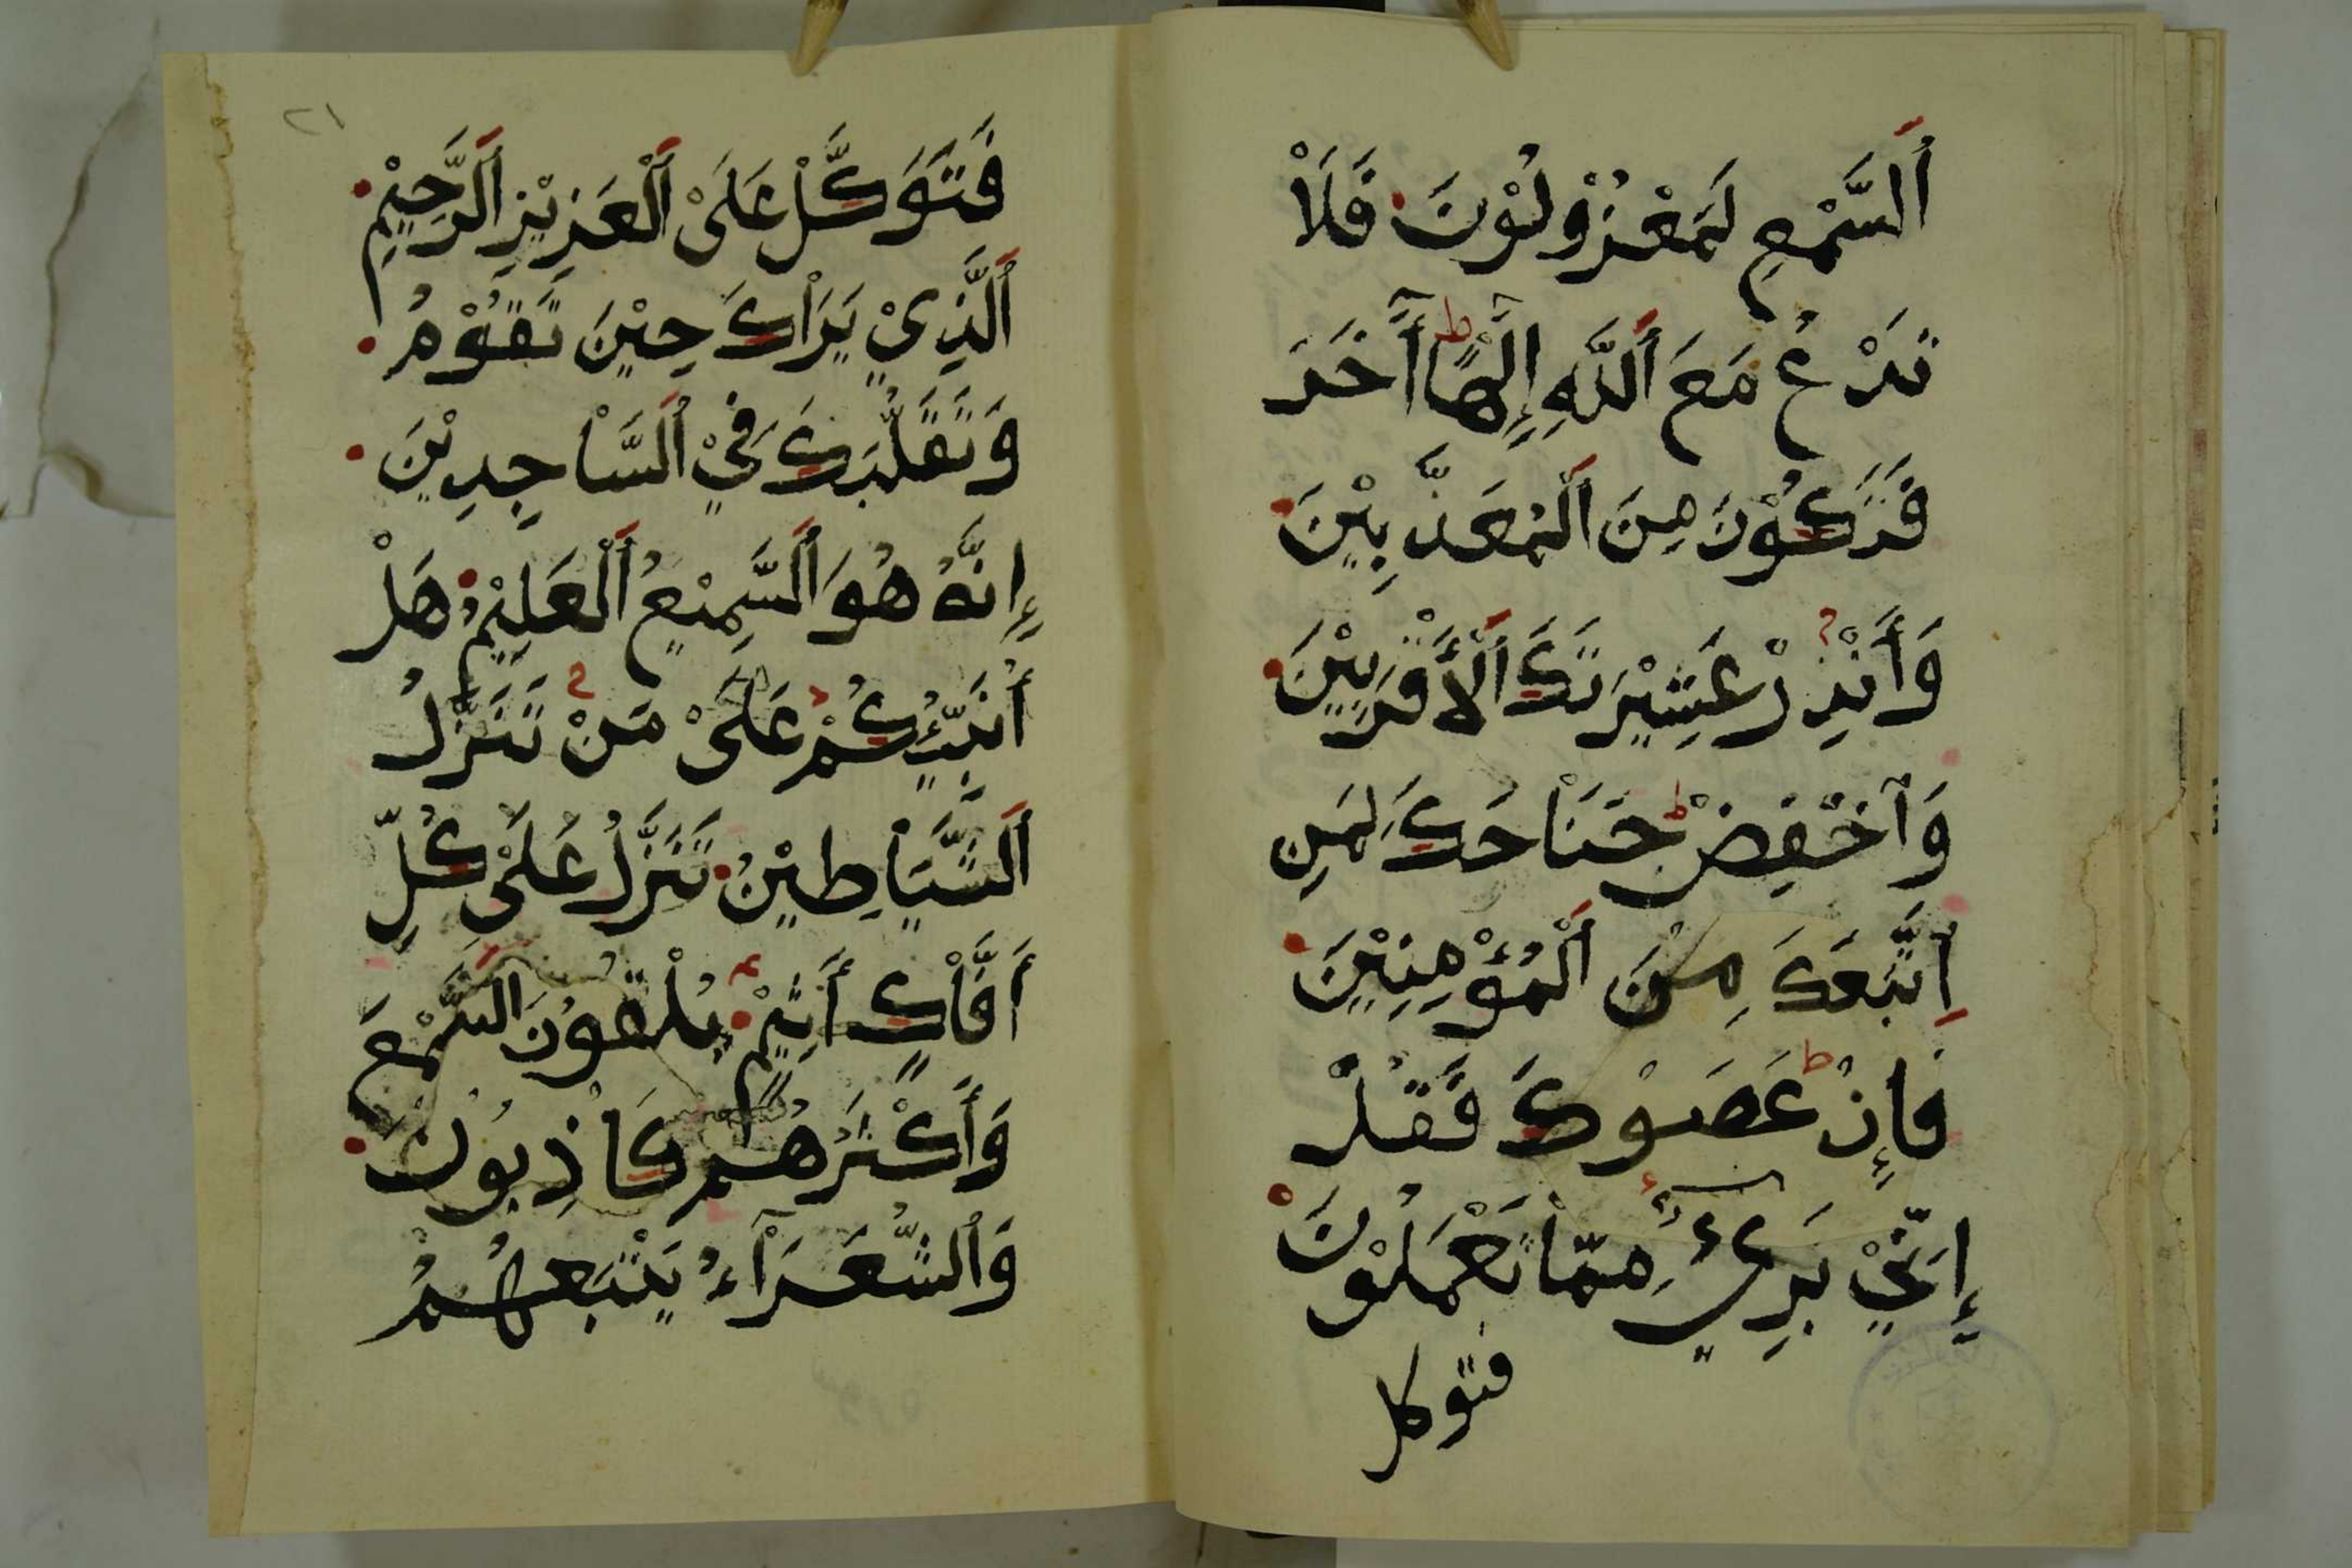 اَلسَّمْعِ لَمَعْزُوْلُوْنَ فَلَاْ
تَدْعُ مَعَ اَللّٰهِ إِلٰهًا أٓخَرَ
فَتَكُوْنَ مِنَ اَلْمُعَذَّبِيْنَ
وَأَنْذِرْ عَشِيْرَتَكَ اَلْأَقْرَبِيْنَ
وَآخْفِضْ جَنَاْحَكَ لِمَنِ
اِتَّبَعَكَ مِنَ اَلْمُؤْمِنِيْنَ
فَإِنْ عَصَوْكَ فَقُلْ
إِنِّيْ بَرِيْٓءٌ مِمَّاْ تَعْمَلُوْنَ
فتوكل
٢١
فَتَوَكَّلْ عَلَىْ اَلْعَزِيْزِ اَلرَّحِيْمِ
اَلَّذِيْ يَرَاْكَ حِيْنَ تَقُوْمُ
وَتَقَلُّبَكَ فِيْ اَلسَّاْجِدِيْنَ
إِنَّهُ هُوَ اَلسَّمِيْعُ اَلْعَلِيْمُ هَلْ
أُنَبِّئُكُمْ عَلَىْ مَنْ تَنَزَّلُ
اَلشَّيَاْطِيْنُ تَنَزَّلُ عَلَىْ كُلِّ
أَفَّاْكٍ أَثِيْمٍ يُلْقُوْنَ السَّمْعَ
وَأَكْثَرُهُمْ كَاْذِبُوْنَ
وَاَلشُّعَرَآءُ يَتَّبِعُهُمُ